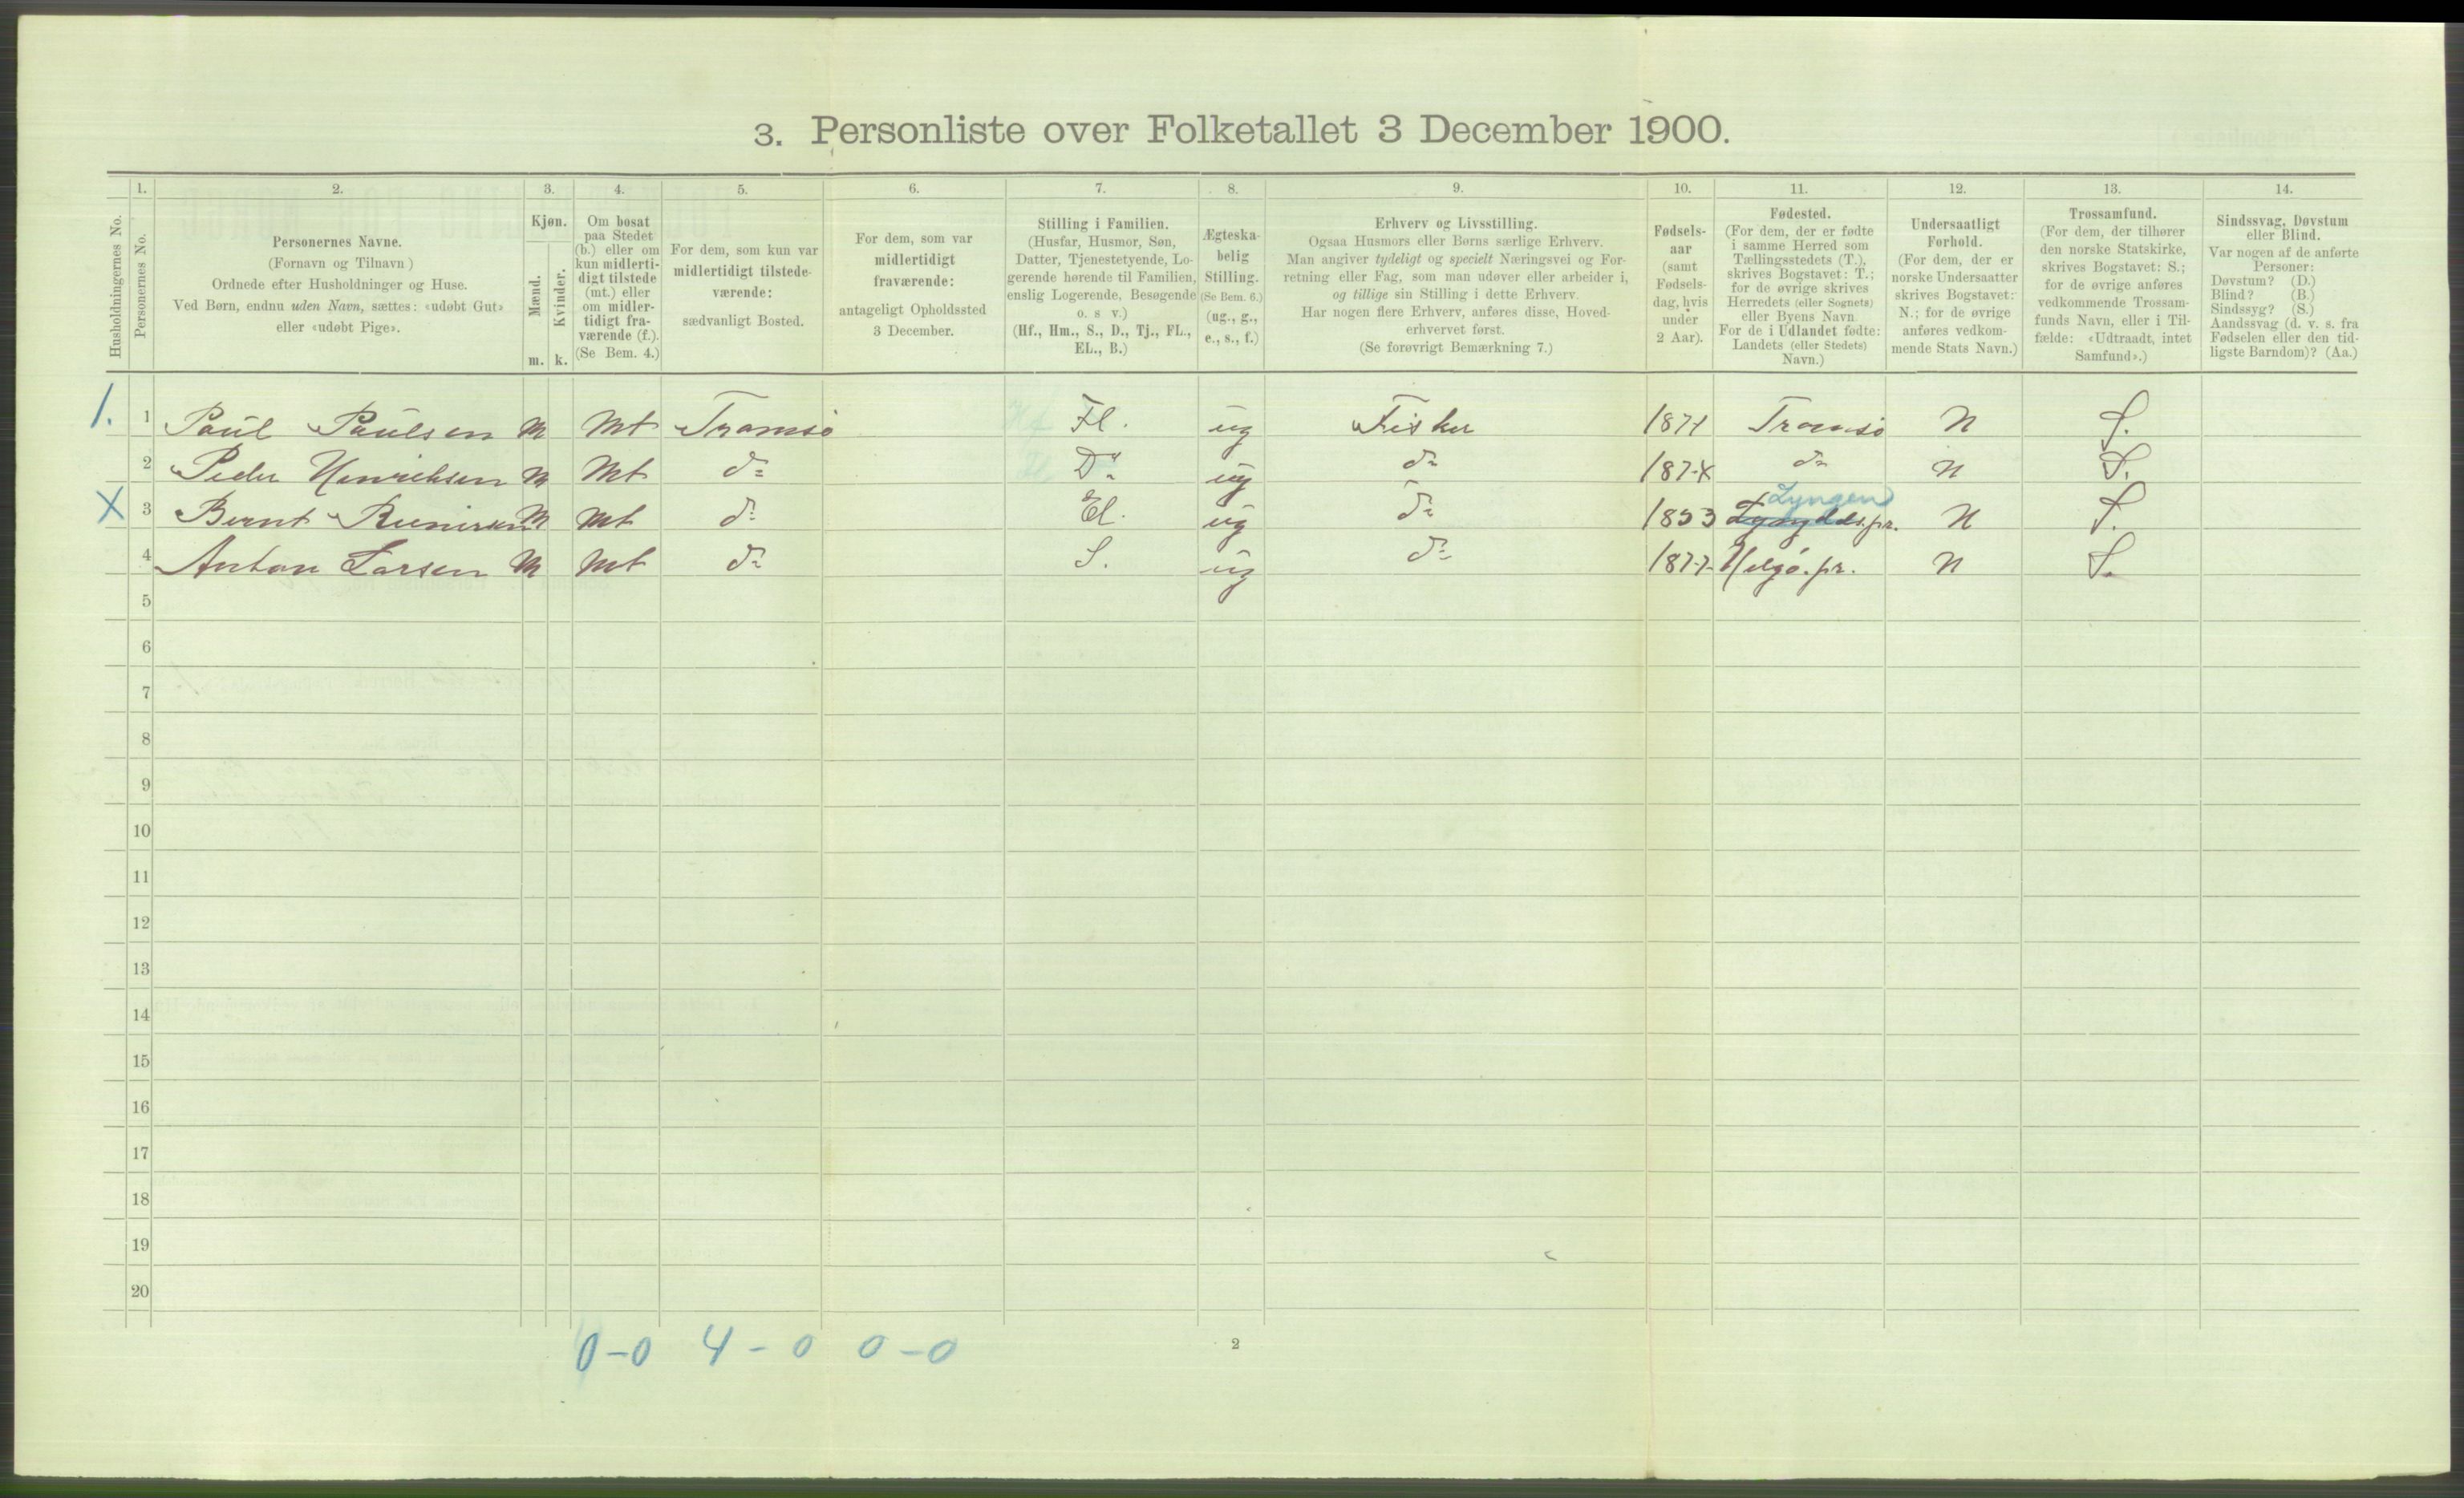 3. Personliste over Folketallet 3 December 1900.
1. 2. 3. 4. 5. 6. 7. 8. 9. 10. 11. 12. 13. 14.
Husholdningernes No.
Personernes No.
Personernes Navne.
(Fornavn og Tilnavn )
Ordnede efter Husholdninger og Huse.
Ved Børn, endnu uden Navn, sættes: «udøbt Gut»
eller «udøbt Pige».
Kjøn.
Mænd.
Kvinder.
m. k.
Om bosat
paa Stedet
(b.) eller om
kun midlerti-
digt tilstede
(mt.) eller
om midler-
tidigt fra-
værende (f.).
(Se Bem. 4.)
For dem, som kun var
midlertidigt tilstede-
værende:
sædvanligt Bosted.
For dem, som var
midlertidigt
fraværende:
antageligt Opholdssted
3 December.
Stilling i Familien.
(Husfar, Husmor, Søn,
Datter, Tjenestetyende, Lo-
gerende hørende til Familien,
enslig Logerende, Besøgende
o. s v.)
(Hf., Hm., S., D., Tj., FL.,
EL., B.)
Ægteska-
belig
Stilling.
(Se Bem. 6.)
(ug., g.,
e., s., f.)
Erhverv og Livsstilling.
Ogsaa Husmors eller Børns særlige Erhverv.
Man angiver tydeligt og specielt Næringsvei og For-
retning eller Fag, som man udøver eller arbeider i,
og tillige sin Stilling i dette Erhverv.
Har nogen flere Erhverv, anføres disse, Hoved-
erhvervet først.
(Se forøvrigt Bemærkning 7.)
Fødsels-
aar
(samt
Fødsels-
dag, hvis
under
2 Aar).
Fødested.
(For dem, der er fødte
i samme Herred som
Tællingsstedets (T.),
skrives Bogstavet: T.;
for de øvrige skrives
Herredets (eller Sognets)
eller Byens Navn.
For de i Udlandet fødte:
Landets (eller Stedets)
Navn.)
Undersaatligt
Forhold.
(For dem, der er
norske Undersaatter
skrives Bogstavet:
N.; for de øvrige
anføres vedkom-
mende Stats Navn.)
Trossamfund.
(For dem, der tilhører
den norske Statskirke,
skrives Bogstavet: S.;
for de øvrige anføres
vedkommende Trossam-
funds Navn, eller i Til-
fælde: «Udtraadt, intet
Samfund».)
Sindssvag, Døvstum
eller Blind.
Var nogen af de anførte
Personer:
Døvstum? (D.)
Blind? (B.)
Sindssyg? (S.)
Aandssvag (d. v. s. fra
Fødselen eller den tid-
ligste Barndom)? (Aa.)
1. 1 Paul Paulsen M Mt Tromsø Fl. ug Fisker 1871 Tromsø N S.
2 Peder Henriksen M Mt do Do ug do 187 do N S.
Lyngen
X 3 Bernt M Mt do El. ug do 1853 pr. N S.
4 Anton Larsen M Mt do S. ug do 1877 Helgø. pr. N S.
5
6
7
8
9
10
11
12
13
14
15
16
17
18
19
20
0-0 4-0 0-0
2